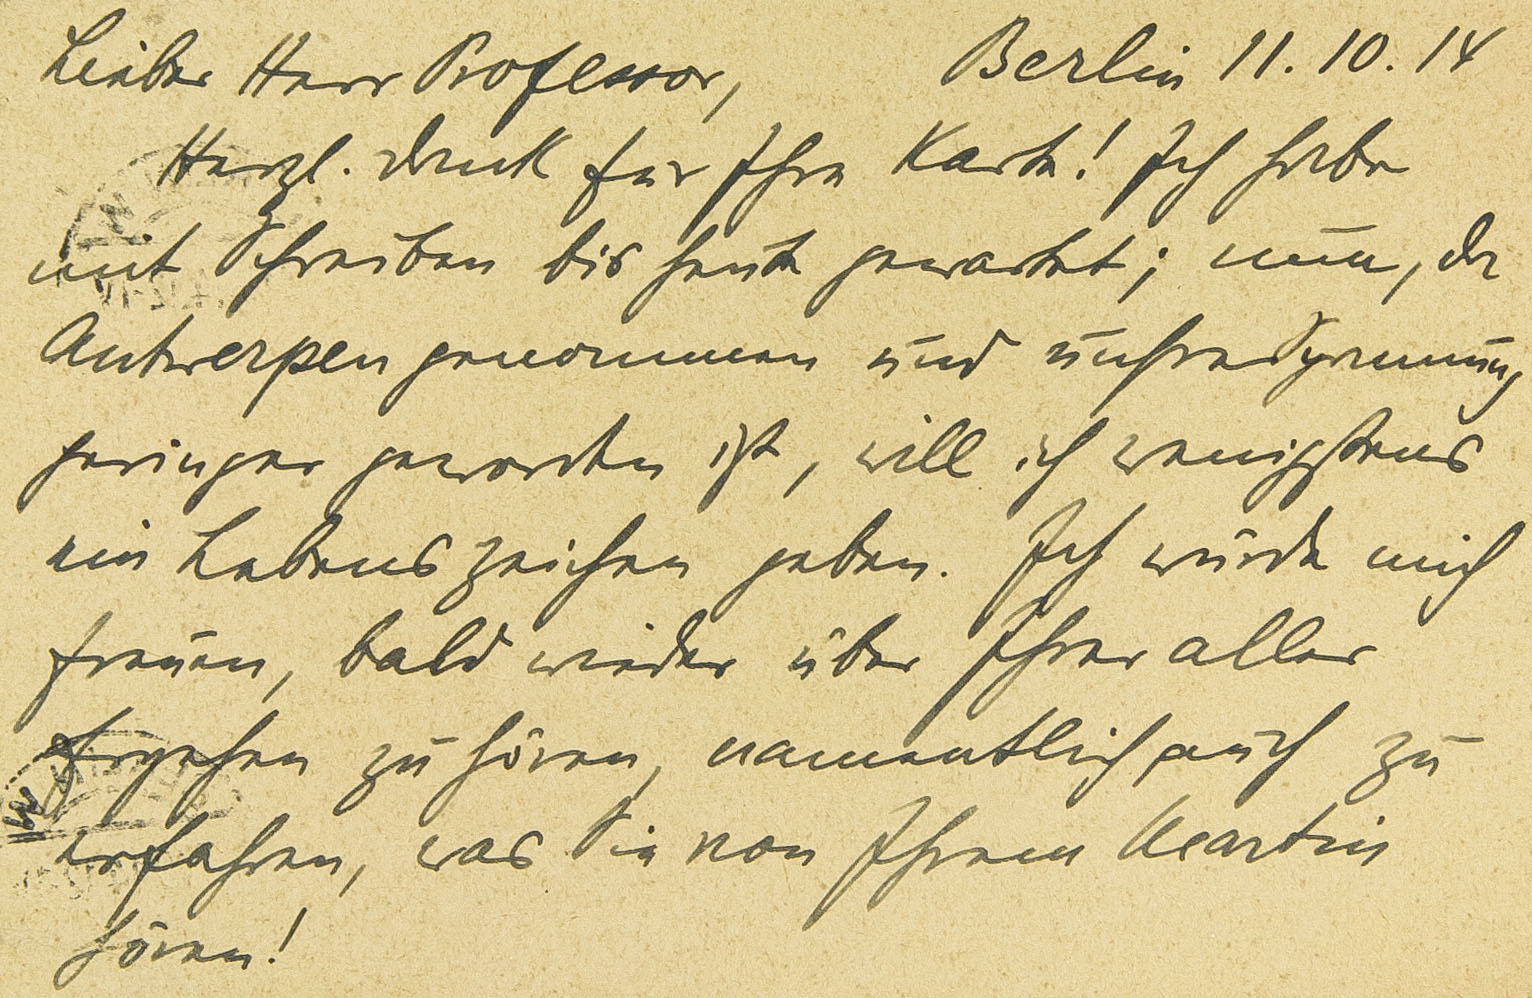 Lieber Herr Professor, Berlin 11.10.14
Herzl. Dank für Ihre Karte! Ich habe
mit Schreiben bis heute gewartet; nun, da
Antwerpen genommen und unsre Spannung
geringer geworden ist, will ich wenigstens
ein Lebenszeichen geben. Ich würde mich
freuen, bald wieder über Ihrer aller
Ergehen zu hören, namentlich auch zu
erfahren, was Sie von Ihrem Martin
hören!